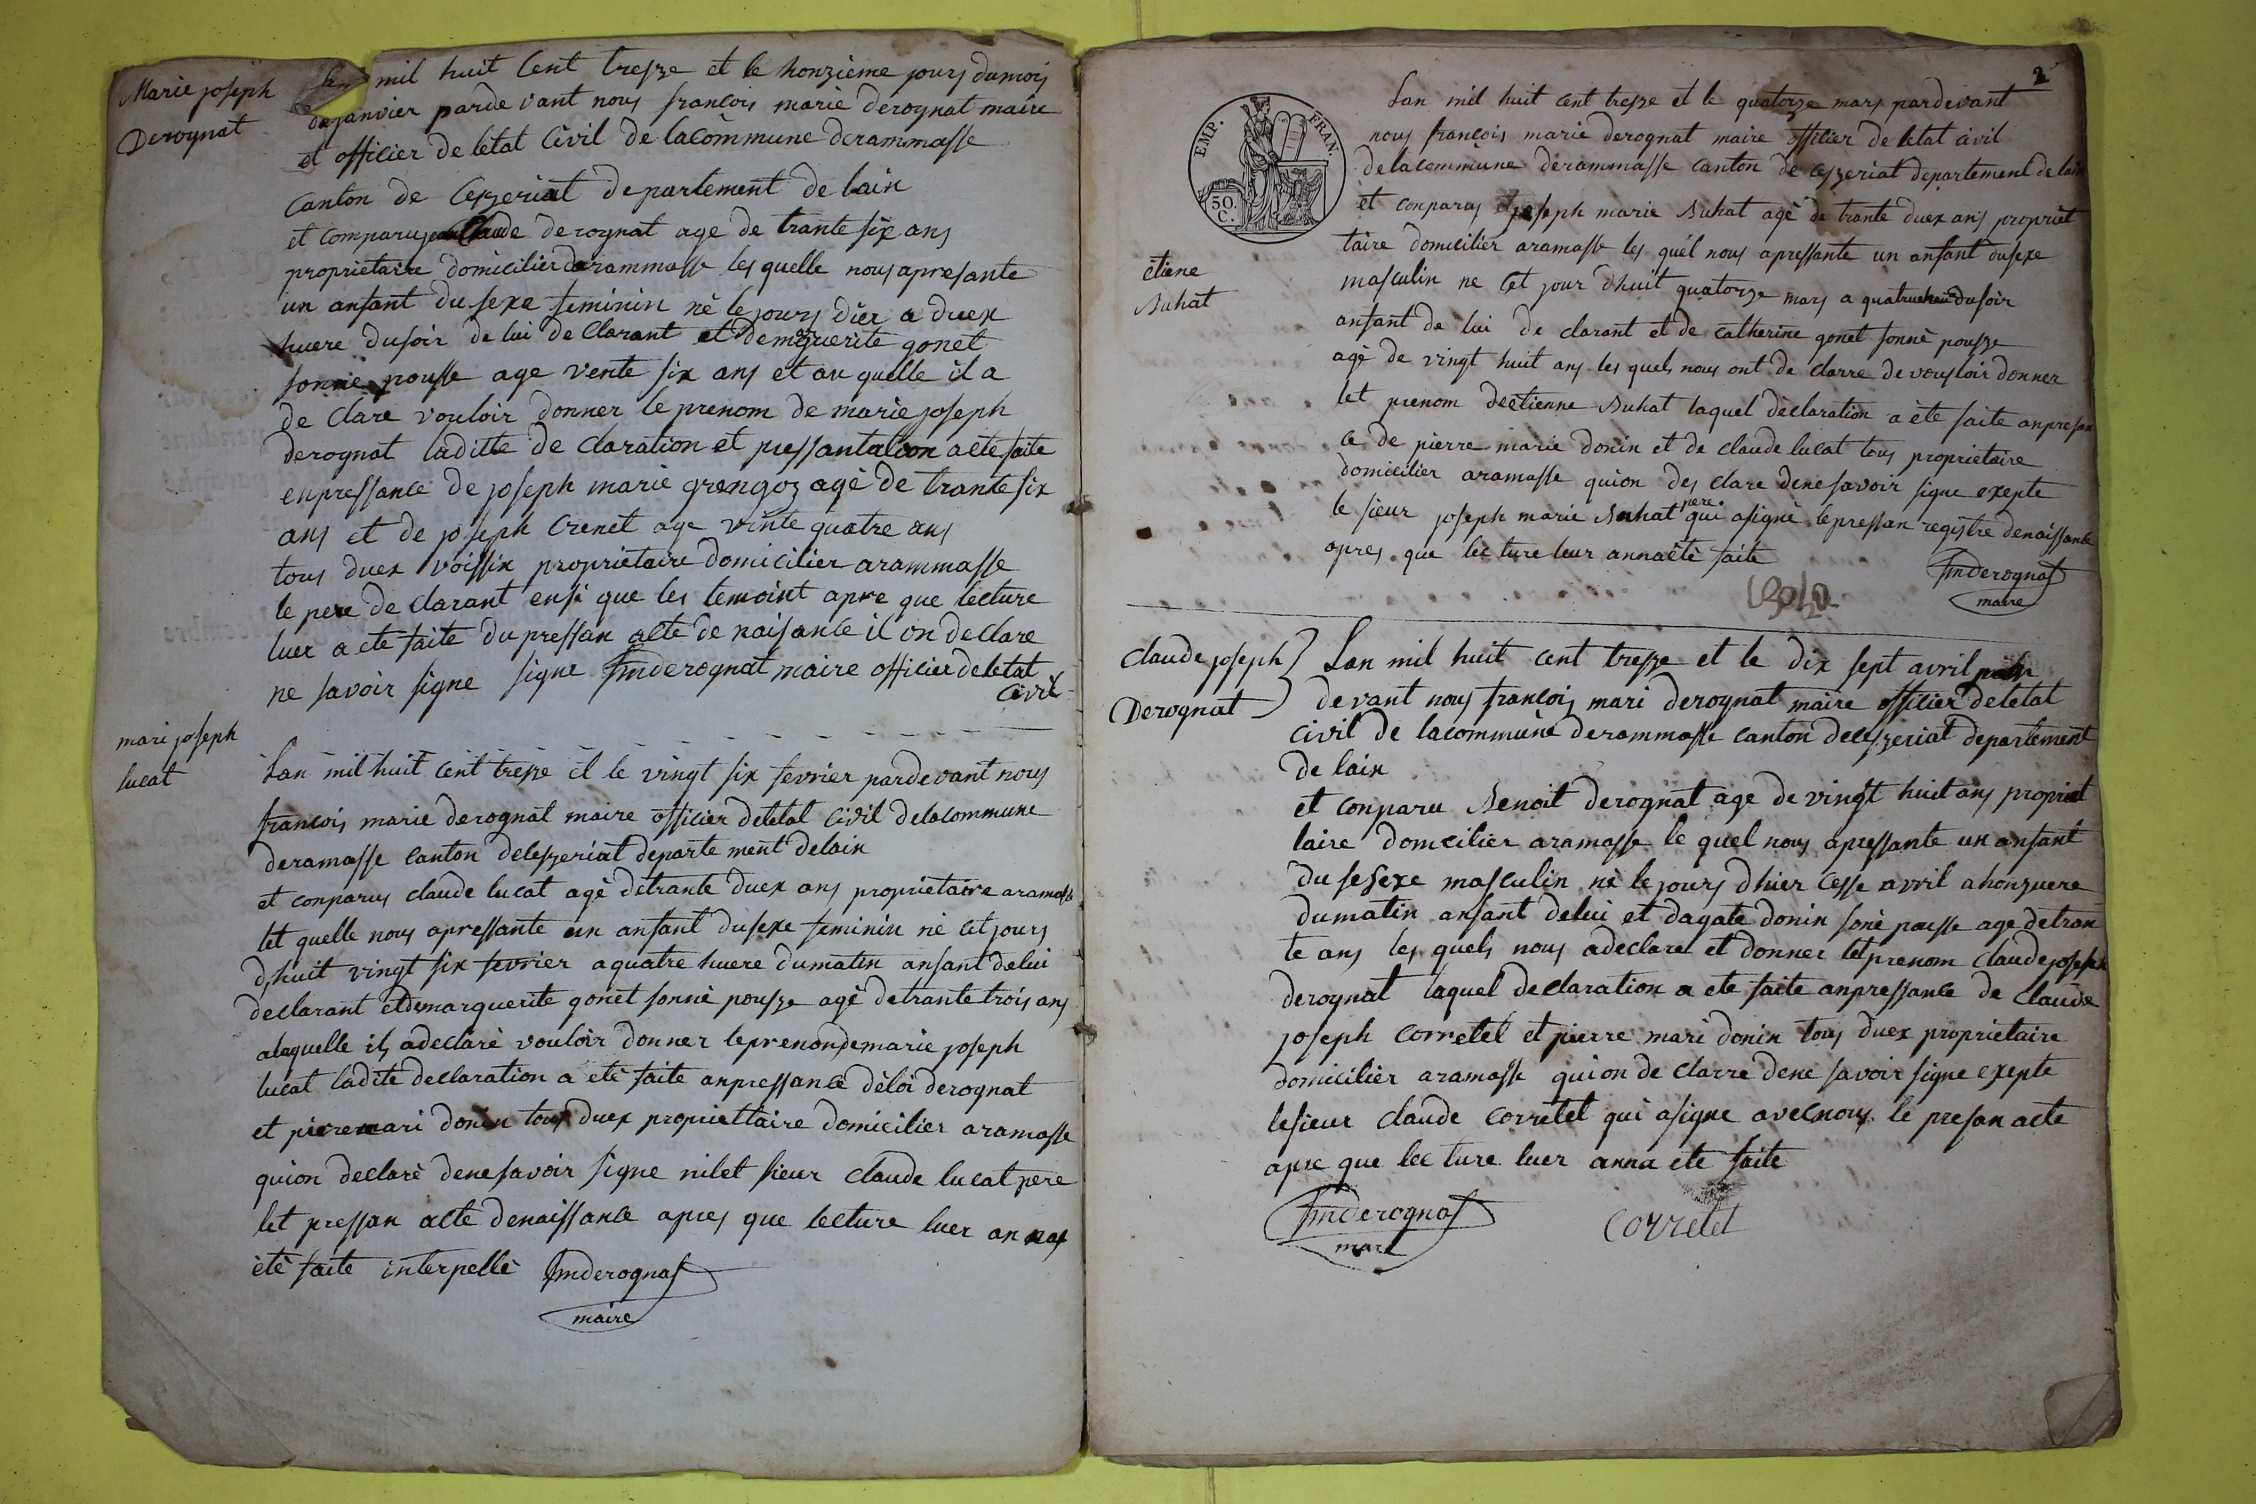 Marie joseph
Derognat
Lan mil huit Cent tresze et le honzieme jours dumois
de janvier parde vant nous francois marie derognat maire
et officier de letat Civil de lacommune derammasse
canton de Ceszeriat departement de lain
et comparu jean Claude derognat age de trante six ans
proprietaire domicilier darammasse les quelle nous apresante
un anfant du sexe feminin nè le jours dier a duex
huere dusoir de lui de Clarant et demarguerite gonet
sonnè pousse age vente six ans et au quelle il a
de Clare vouloir donner le prenom de marie joseph
derognat laditte de Claration et pressantation aètè faite
enpressance de joseph marie grengoz agè de trante six
ans et de joseph Crenet age vinte quatre ans
tous duex voissix proprietaire domicilier arammasse
le pere de Clarant ensi que les temoint apre que lecture
luer a ete faite du pressan acte de naisance il on declare
ne savoir signe signe fmderognat maire officier deletat
Civil
mari joseph
lucat
Lan mil huit cent tresze et le vingt six fevrier pardevant nous
francois marie derognat maire officier deletat Civil delacommune
deramasse canton deleszeriat departe ment delain
et conparus claude lucat agè detrante duex ans proprietaire aramasse
let quelle nous apressante un anfant dusexe feminin nè cet jours
dhuit vingt six fevrier aquatre huere dumatin anfant delui
declarant etdemarguerite gonet sonnè pousze agè detrante trois ans
alaquelle ils adeclarè vouloir donner leprenondemarie joseph
lucat ladite declaration a etè faite anpressance dèloi derognat
et pieremari donin tous duex propriettaire domicilier aramasse
quion declarè denesavoir signe nilet sieur Claude lucat pere
let pressan acte denaissance apres que lecture luer an nat
ètè faite interpellè fmderognat
maire
2
EMP. FRAN.
50.
C.
Lan mil huit cent tresze et le quatorze mars pardevant
nous francois marie derognat maire officier de letat civil
delacommune derammasse canton de ceszeriat departement de lain
et conparus joseph marie Buhat agè de trante duex ans propriet
taire domicilier aramasse les quèl nous apressante un anfant dusexe
masculin ne cet jour dhuit quatorze mars a quatruehuere dusoir
anfant de lui de clarant et de catherine gonet sonnè pousze
agè de vingt huit ans les quels nous ont de clarre de vousloir donner
let prenom deetienne Buhat laquel dèclaration a ète faite anpresan
ce de pierre marie donin et de claude lucat tous proprietaire
domicilier aramasse quion des clare denesavoir signe exepte
le sieur joseph marie Buhat pere qui asignè lepressan registre denaissance
apres que lecture leur annaètè faite
fmderognat
maire
ètiene
Buhat
Claude joseph
Derognat
Lan mil huit cent tresze et le dix sept avril par
devant nous francois mari derognat maire officier deletat
civil de lacommune derammasse canton deceszeriat departement
de lain
et conparu Benoit derognat age de vingt huit ans propriet
taire domcilier aramasse le quel nous apressante un anfant
du sesexe masculin nè le jours dhier cesse avril ahonzuere
dumatin anfant delui et dagate donin sonè pousse age detran
te ans les quels nous adeclare et donner let prenom Claude joseph
derognat laquel declaration a ete faite anpressance de Claude
joseph Corretel et pierre mari donin tous duex proprietaire
domicilier aramasse quion de clarre dene savoir signe exepte
lesieur Claude Corretet qui asigne avecnous le presan acte
apre que lecture luer anna ète faite
fmderognat
mare
Corretet